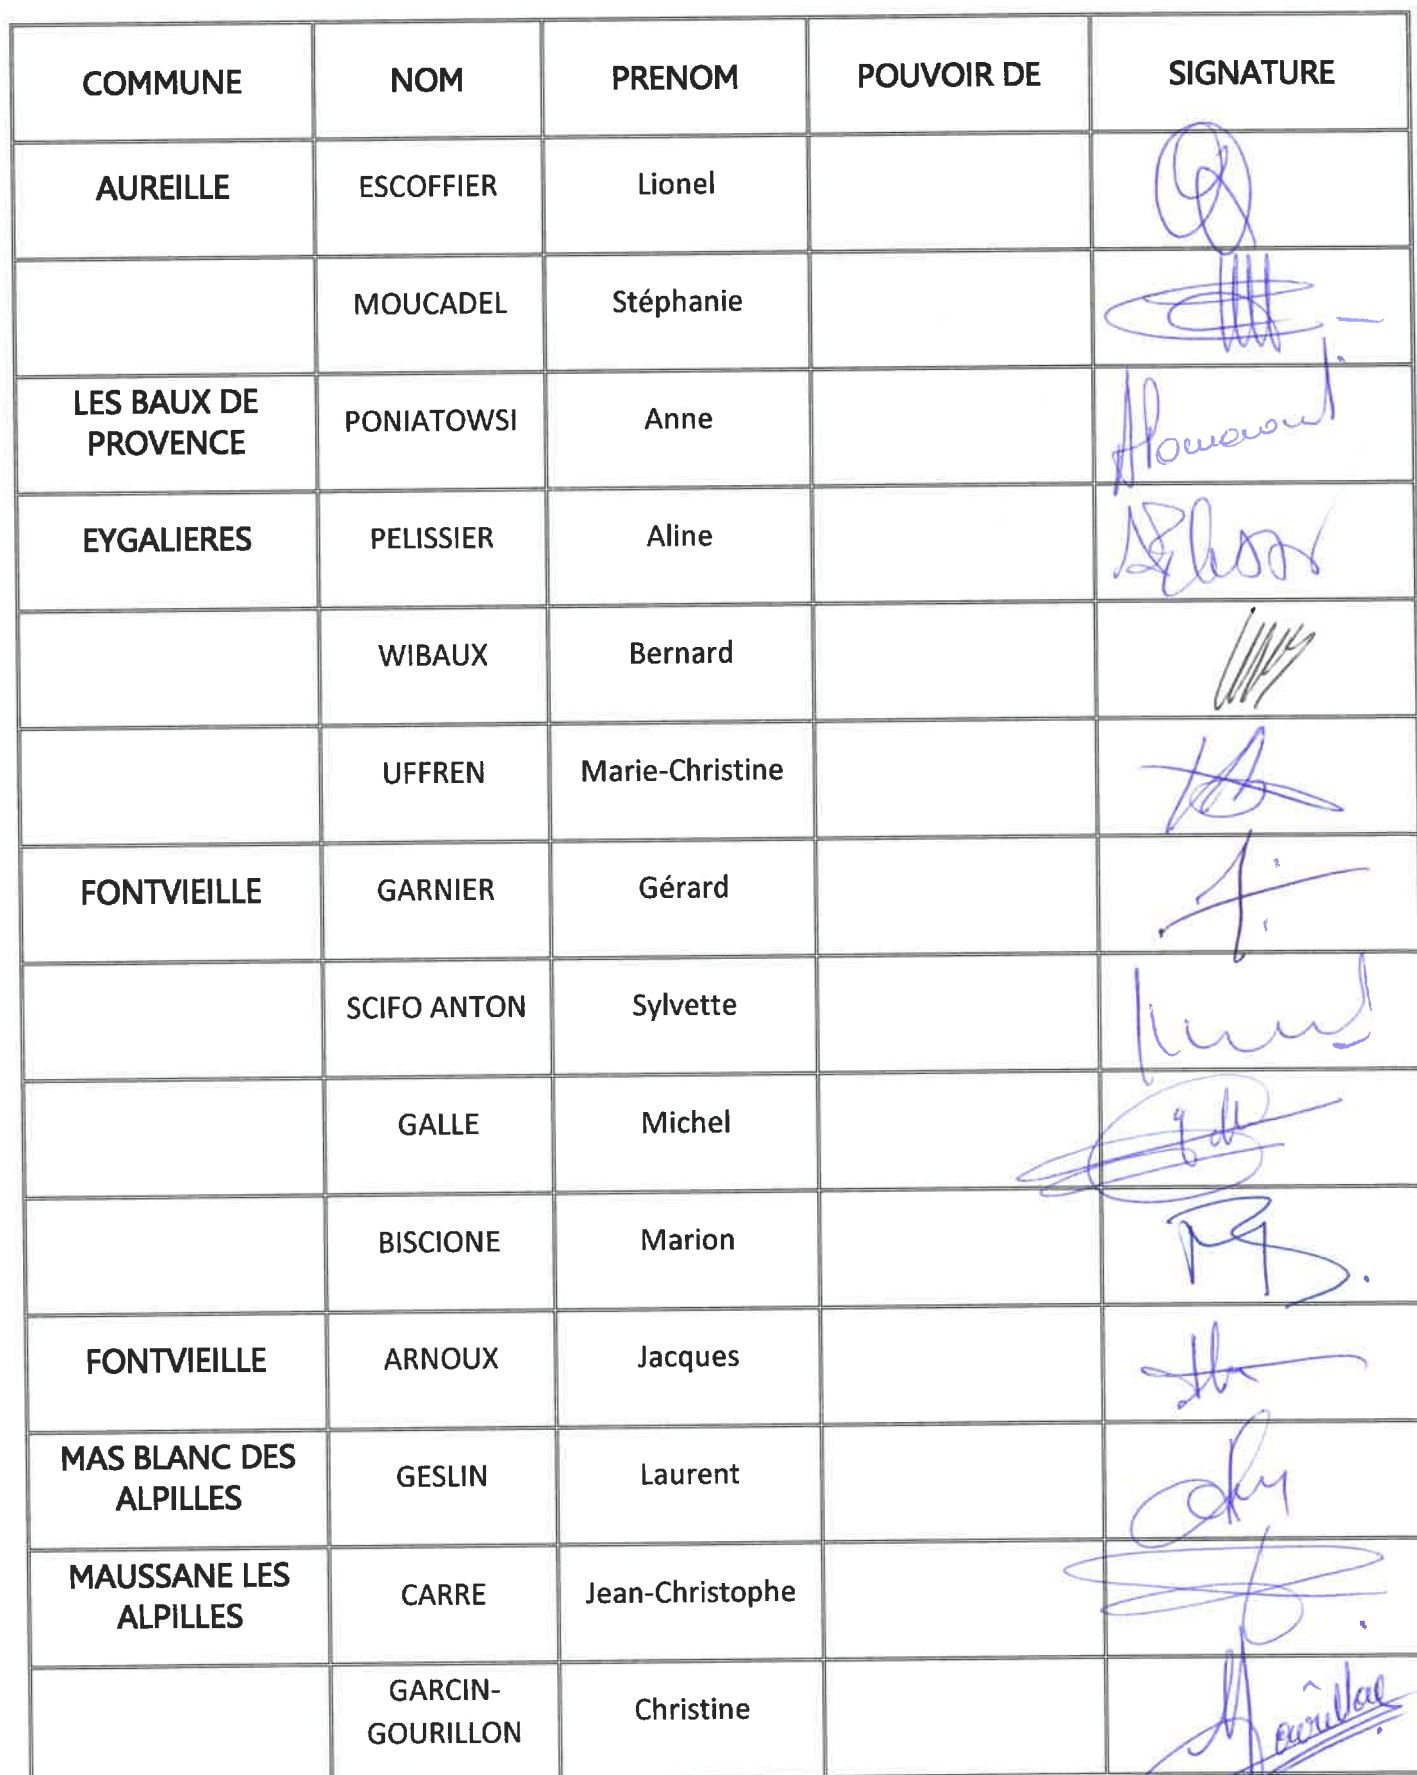 COMMUNE NOM PRENOM POUVOIR DE SIGNATURE
AUREILLE ESCOFFIER Lionel
MOUCADEL Stéphanie
LES BAUX DE
PROVENCE PONIATOWSI Anne
EYGALIERES PELISSIER Aline
WIBAUX Bernard
UFFREN Marie-Christine
FONTVIEILLE GARNIER Gérard
SCIFO ANTON Sylvette
GALLE Michel
BISCIONE Marion
FONTVIEILLE ARNOUX Jacques
MAS BLANC DES
ALPILLES GESLIN Laurent
MAUSSANE LES
ALPILLES CARRE Jean-Christophe
GARCIN-
GOURILLON Christine